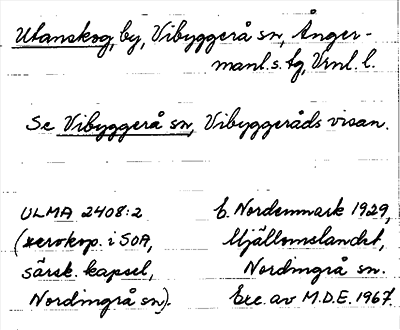 Utanskog, by, Vibyggerå sn, Ånger-
manl. s. tg, Vrnl. l.
Se Vibyggerå sn, Vibyggeråds visan.
ULMA 2408:2
(xerokop. i SOA,
särsk. kapsel,
Nordingrå sn).
E. Nordenmark 1929,
Mjällomslandet,
Nordingrå sn.
Exc. av M.D.E. 1967.